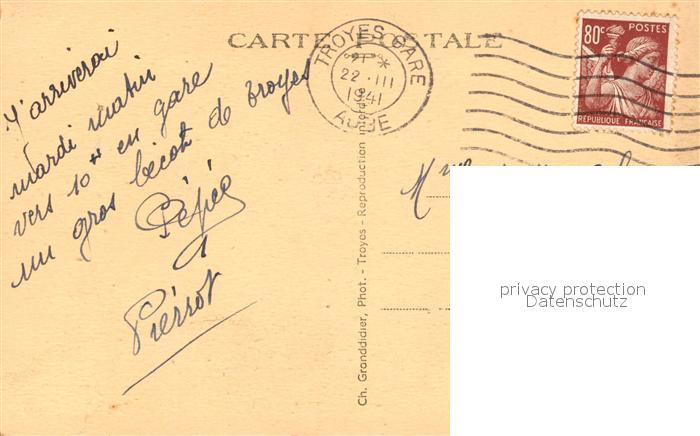 CARTE POSTALE
J'arriverai
mardi matin
vers 10 H en gare
un gros bécot de Troyes
Pierrot
TROYES GARE
21 *
22 - III
1941
AUBE
80c POSTES
RÉPUBLIQUE FRANÇAISE
Mme
Ch. Granddidier, Phot. - Troyes - Reproduction interdite
privacy protection
Datenschutz